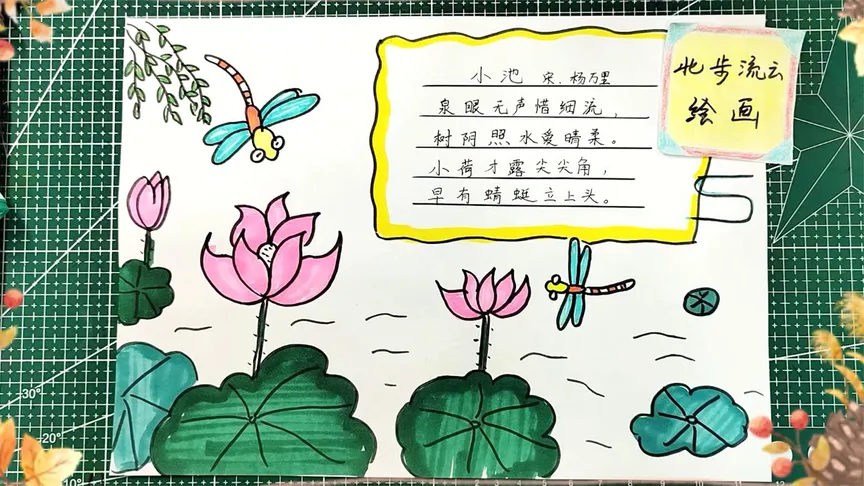 小池 宋.杨万里
泉眼无声惜细流，
树阴照水爱晴柔。
小荷才露尖尖角，
早有蜻蜓立上头。
北步流云
绘画
30°
20°
10°